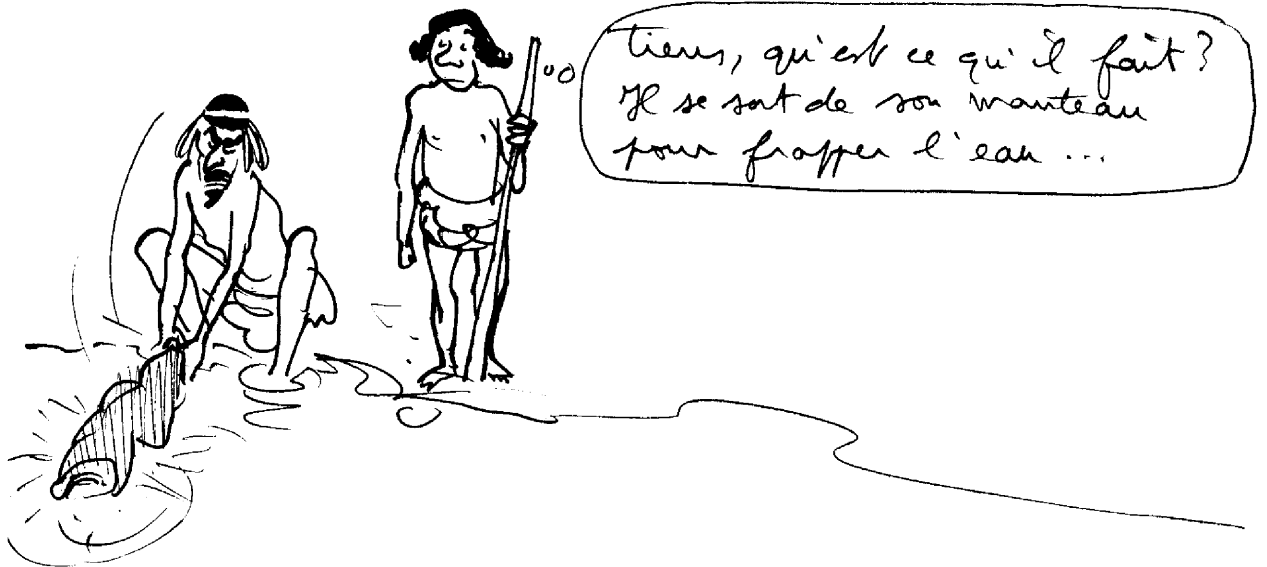 tiens, qu'est ce qu'il fait?
Il se sert de son manteau
pour frapper l'eau ...